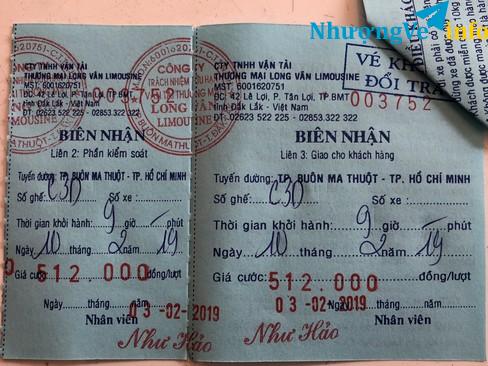 NhượngVé Info
CTY TNHH VẬN TẢI
THƯƠNG MẠI LONG VÂN LIMOUSINE
MST: 6001620751
ĐC: 42 Lê Lợi, P. Tân Lợi, TP.BMT
tỉnh Đắk Lắk - Việt Nam
ĐT: 02623 522 225 - 02853 322 322
003752
BIÊN NHẬN
Liên 2: Phần kiểm soát
Tuyến đường: TP. BUÔN MA THUỘT - TP. HỒ CHÍ MINH
Số ghế: C3D Số xe :
Thời gian khởi hành: 9 giờ phút
Ngày 10 tháng 2 năm 19
Giá cước: 512.000 đồng/lượt
Ngày tháng năm
03-02-2019
Nhân viên
Như Hảo
CÔNG TY
TRÁCH NHIỆM HỮU HẠN
VẬN TẢI
LONG VÂN
LIMOUSINE
CTY TNHH VẬN TẢI
THƯƠNG MẠI LONG VÂN LIMOUSINE
MST: 6001620751
ĐC: 42 Lê Lợi, P. Tân Lợi, TP.BMT
tỉnh Đắk Lắk - Việt Nam
ĐT: 02623 522 225 - 02853 322 322
003752
BIÊN NHẬN
Liên 3: Giao cho khách hàng
Tuyến đường: TP. BUÔN MA THUỘT - TP. HỒ CHÍ MINH
Số ghế: C3D Số xe :
Thời gian khởi hành: 9 giờ phút
Ngày 10 tháng 2 năm 19
Giá cước: 512.000 đồng/lượt
Ngày tháng năm
03-02-2019
Nhân viên
Như Hảo
VÉ
ĐỔI TRẢ